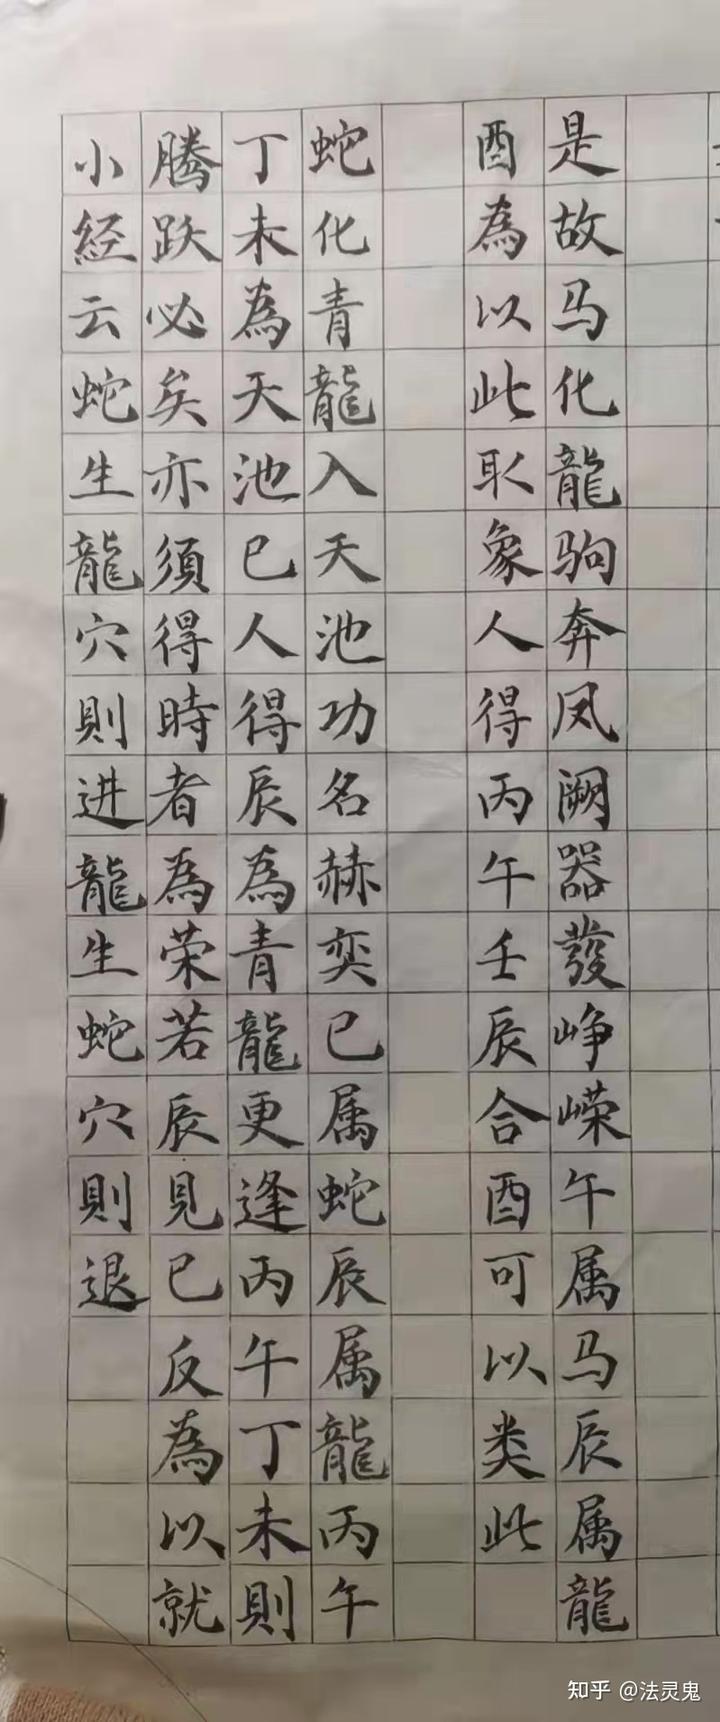 是故马化龍驹奔凤阙器發峥嵘午属马辰属龍
酉為以此取象人得丙午壬辰合酉可以类此
蛇化青龍入天池功名赫奕巳属蛇辰属龍丙午
丁未為天池巳人得辰為青龍更逢丙午丁未則
腾跃必矣亦須得時者為荣若辰見巳反為以就
小经云蛇生龍穴則进龍生蛇穴則退
知乎 @法灵鬼